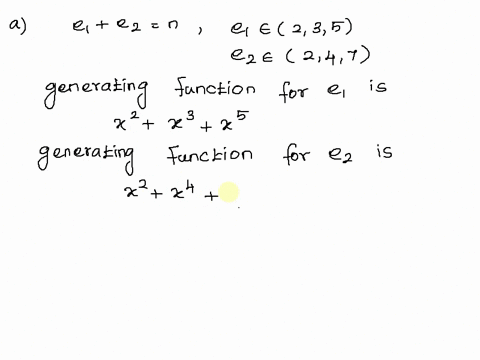 a) e₁ + e₂ = n , e₁ ∈ ( 2, 3, 5 )
e₂ ∈ ( 2, 4, 7 )
generating function for e₁ is
x² + x³ + x⁵
generating function for e₂ is
x² + x⁴ +